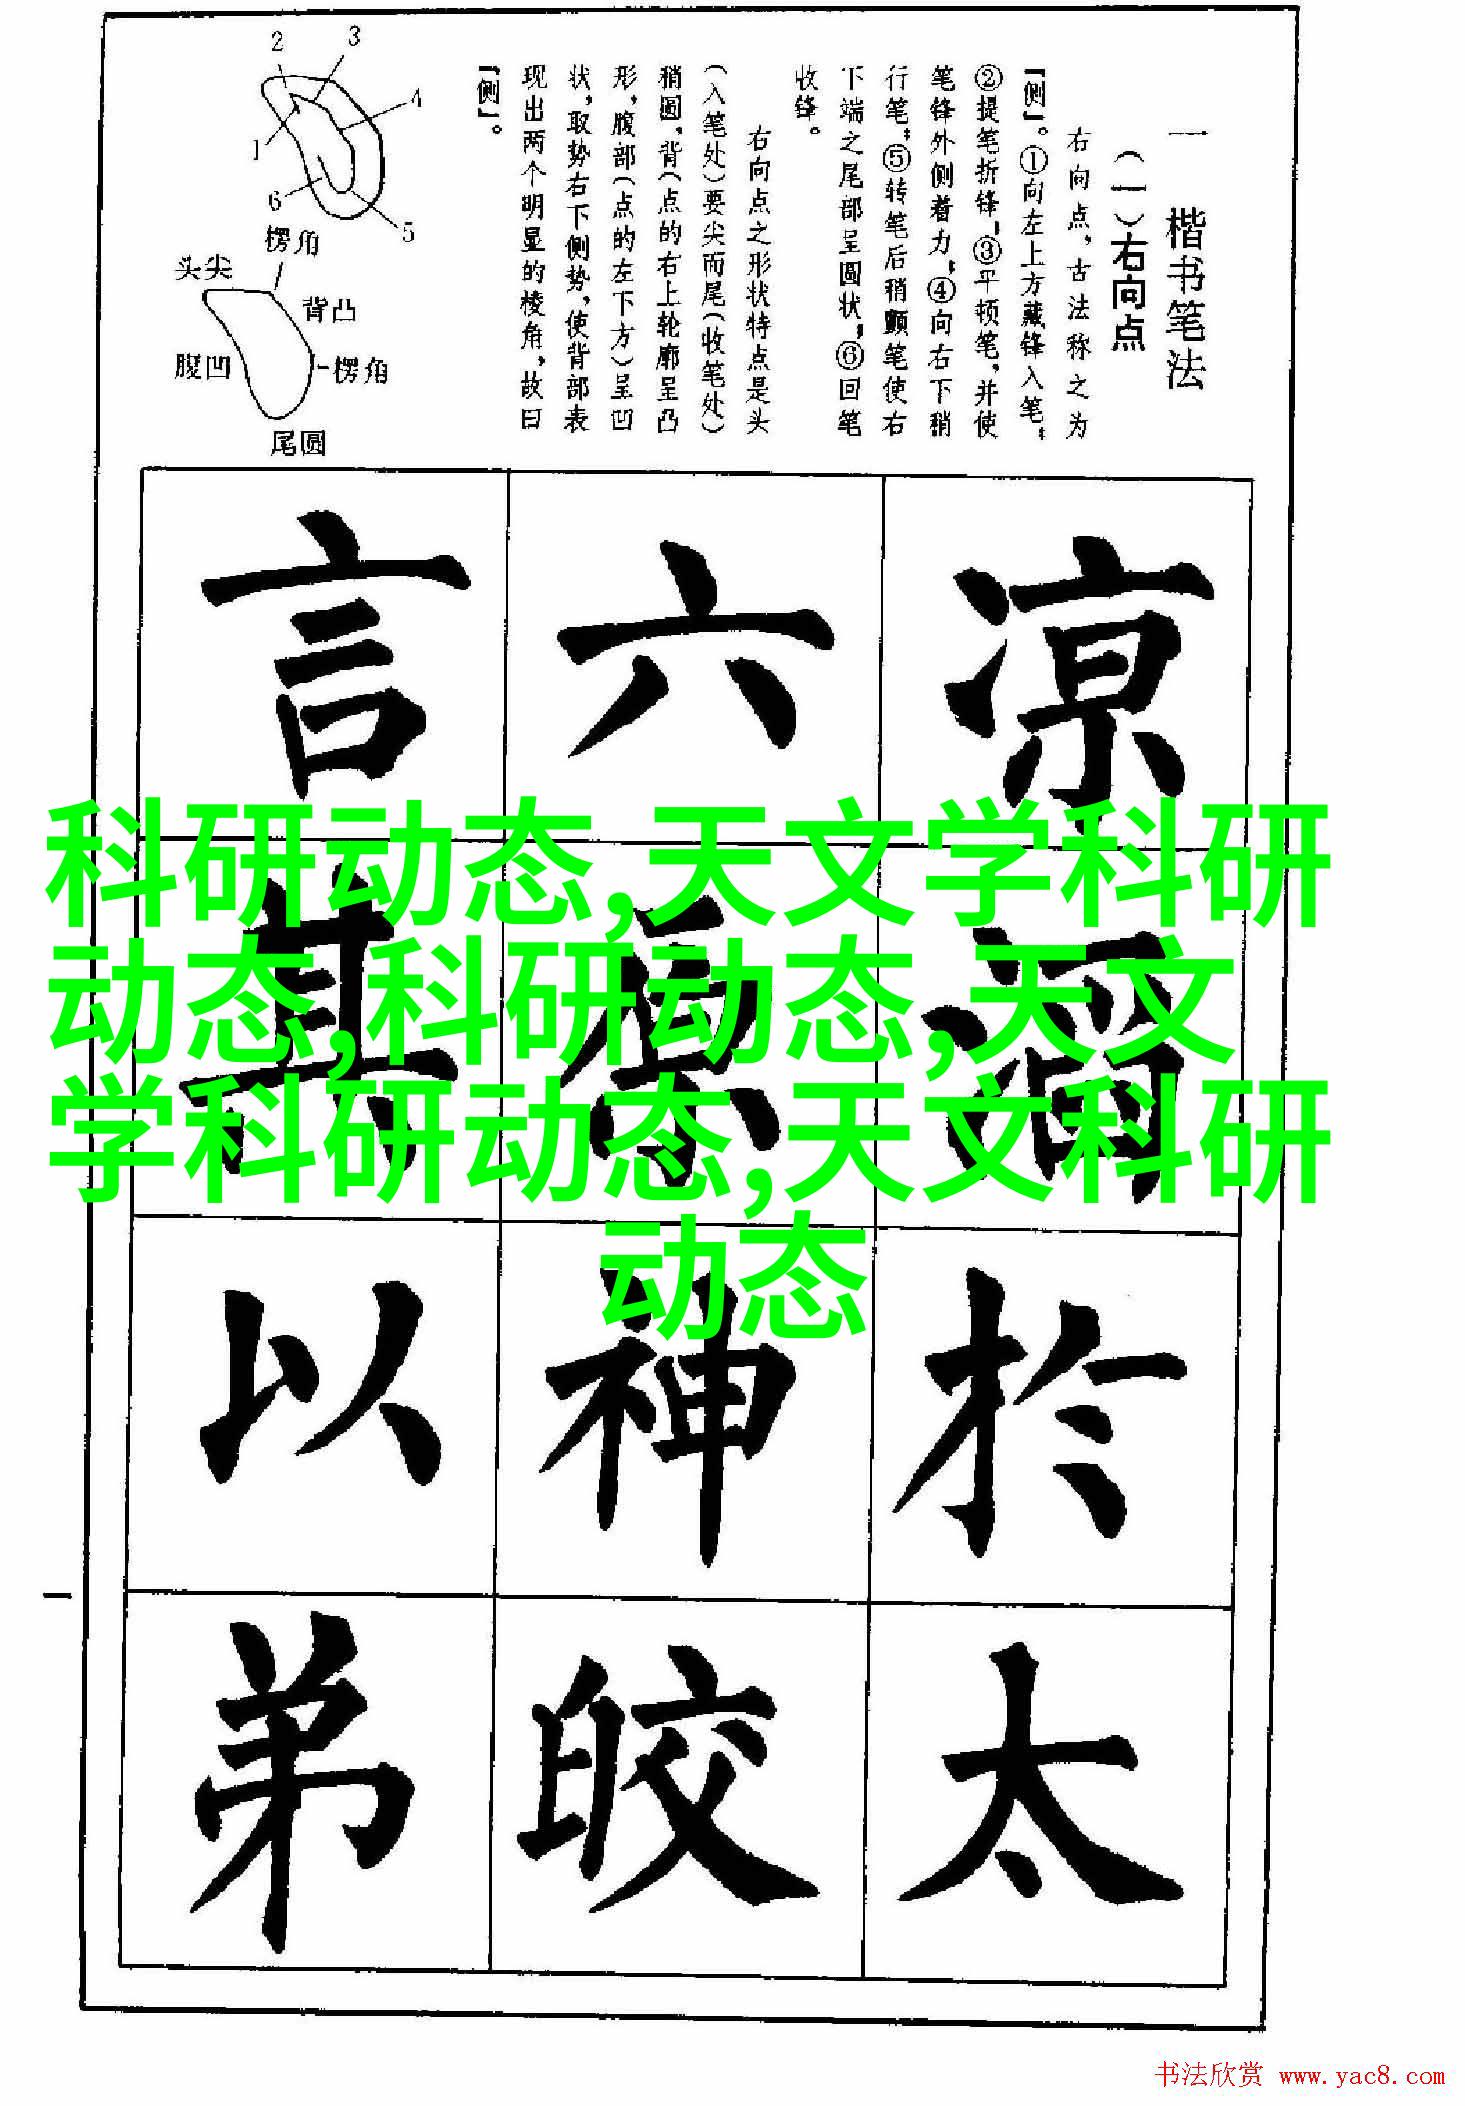 一 楷书笔法
（一）右向点
右向点，古法称之为
「侧」。①向左上方藏锋入笔；
②提笔折锋；③平顿笔，并使
笔锋外侧着力；④向右下稍
行笔；⑤转笔后稍颤笔使右
下端之尾部呈圆状；⑥回笔
收锋。
右向点之形状特点是头
（入笔处）要尖而尾（收笔处）
稍圆，背（点的右上轮廓呈凸
形，腹部（点的左下方）呈凹
状，取势右下侧势，使背部表
现出两个明显的棱角，故曰
「侧」。
1
2
3
4
5
6
楞角
头尖
背凸
腹凹
楞角
尾圆
凉 於 太
六 神 皎
言 其 以 弟
科研动态,天文学科研
动态,科研动态,天文
学科研动态,天文科研
动态
一
书法欣赏 www.yac8.com